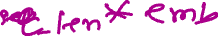 len* emb